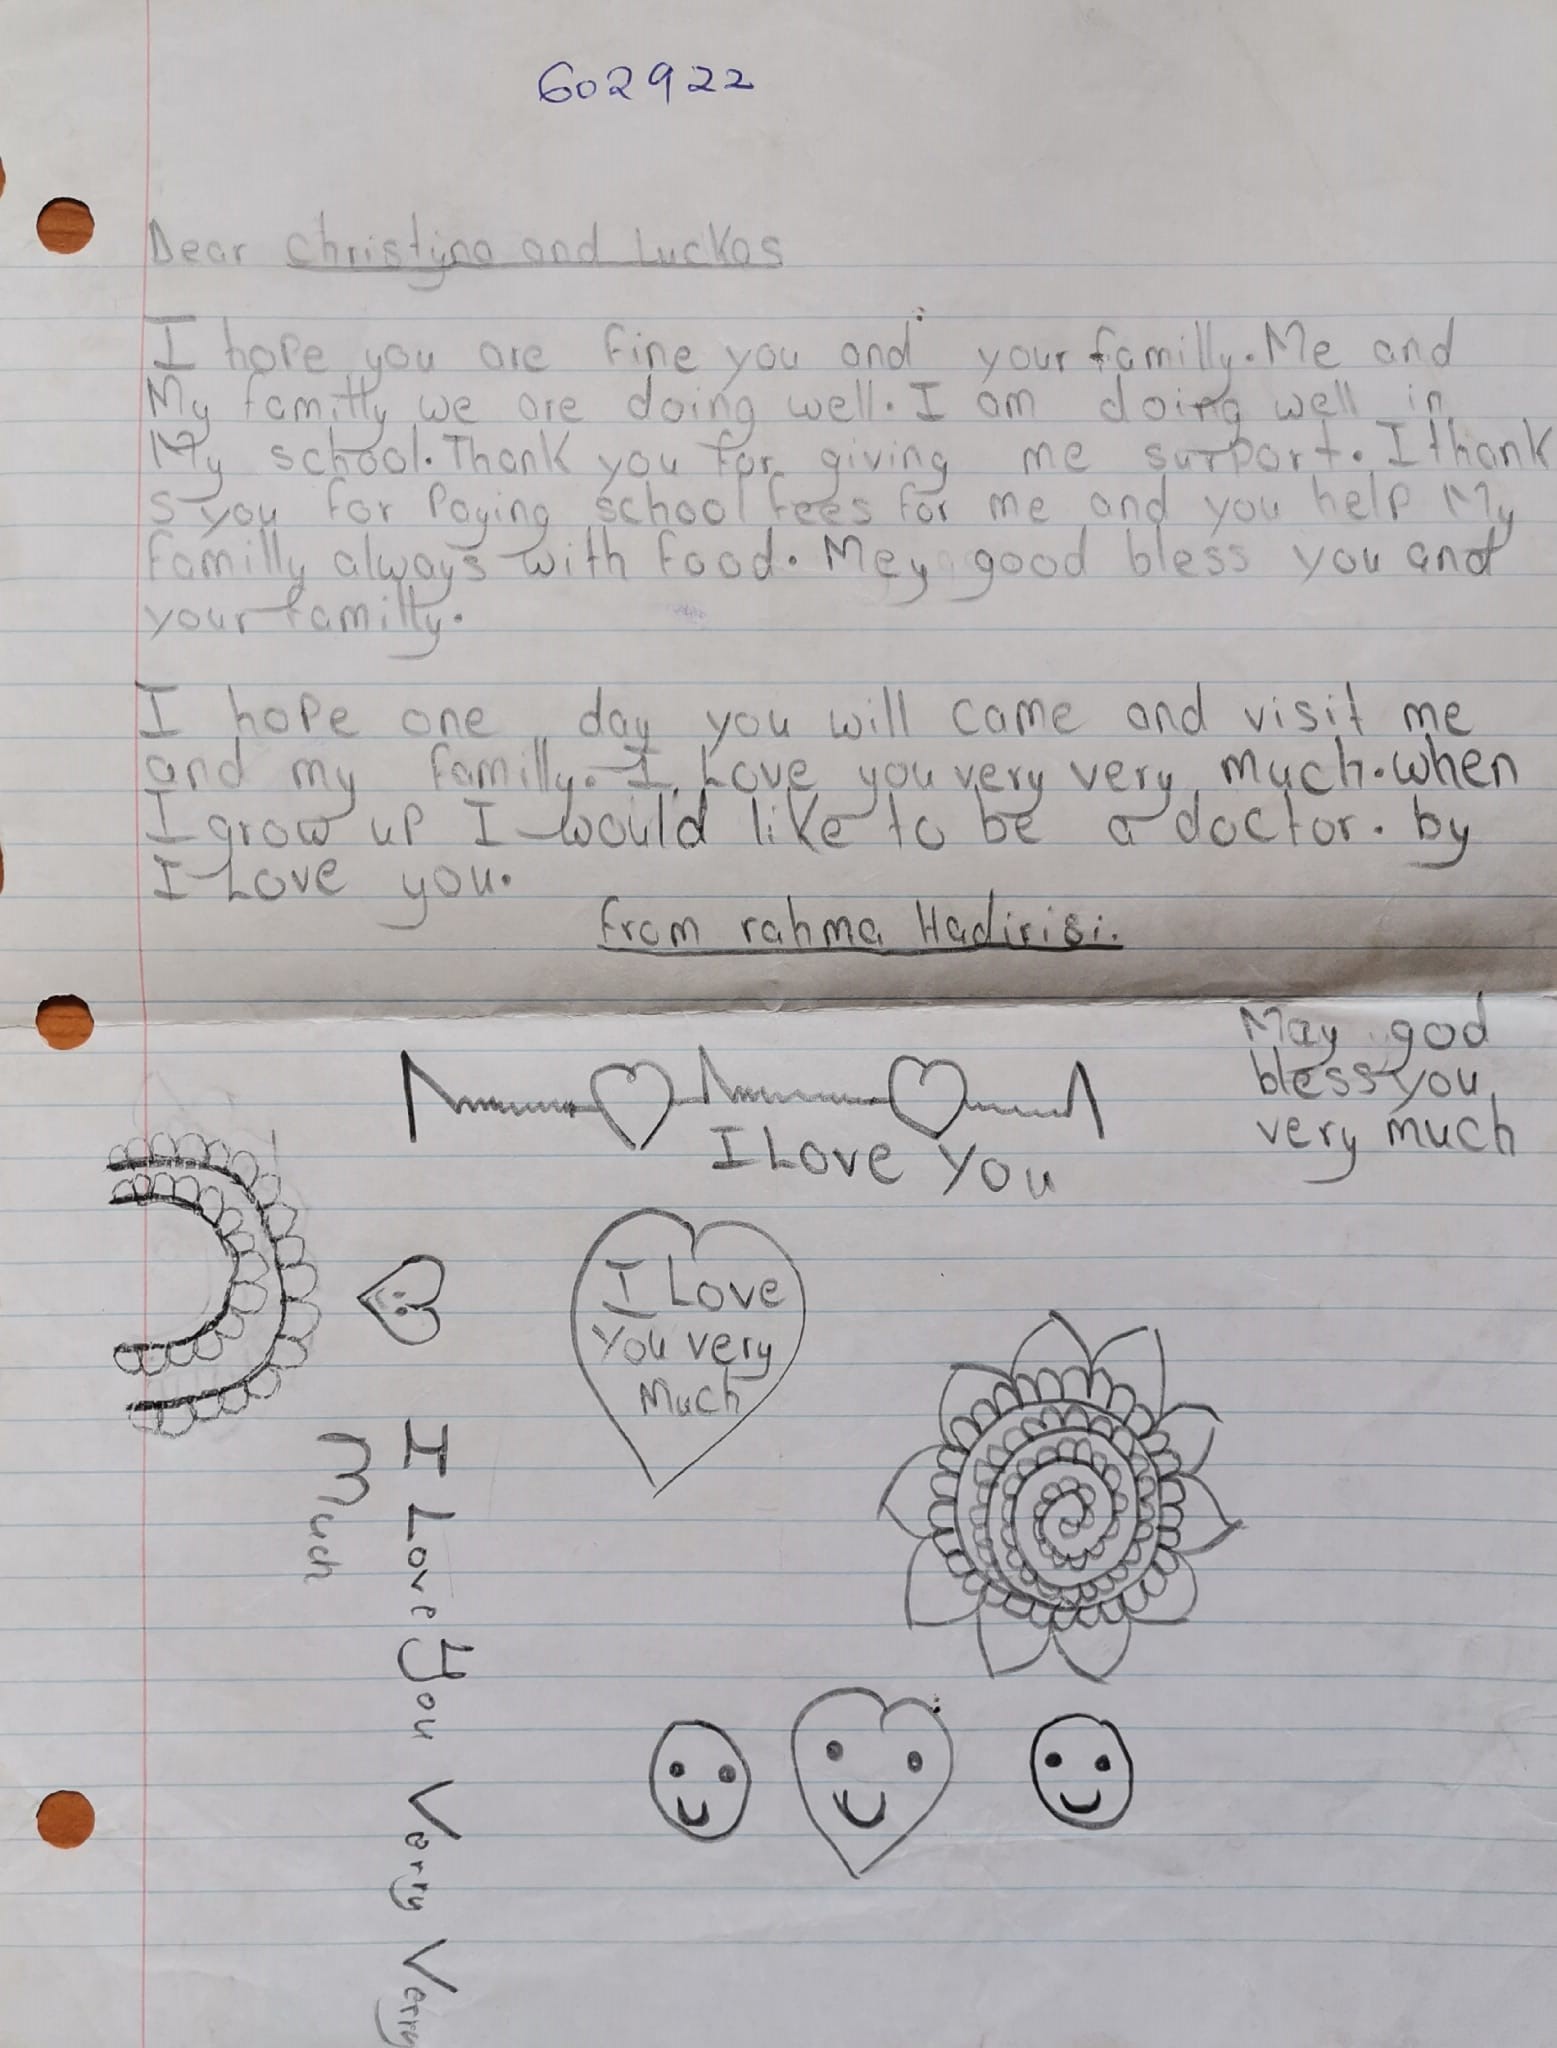 602922
Dear Christyna and Luckas
I hope you are fine you and your familly. Me and
My familly we are doing well. I am doing well in
My school. Thank you for giving me surport. I thank
s you for Paying school fees for me and you help My
familly always with food. Mey good bless you and
your familly.
I hope one day you will came and visit me
and my familly. I Love you very very much. when
I grow up I would like to be a doctor. by
I Love you.
from rahma Hadirisi.
May god
bless you
very much
I Love you
I Love
you very
Much
I Love You Verry Verry
Much